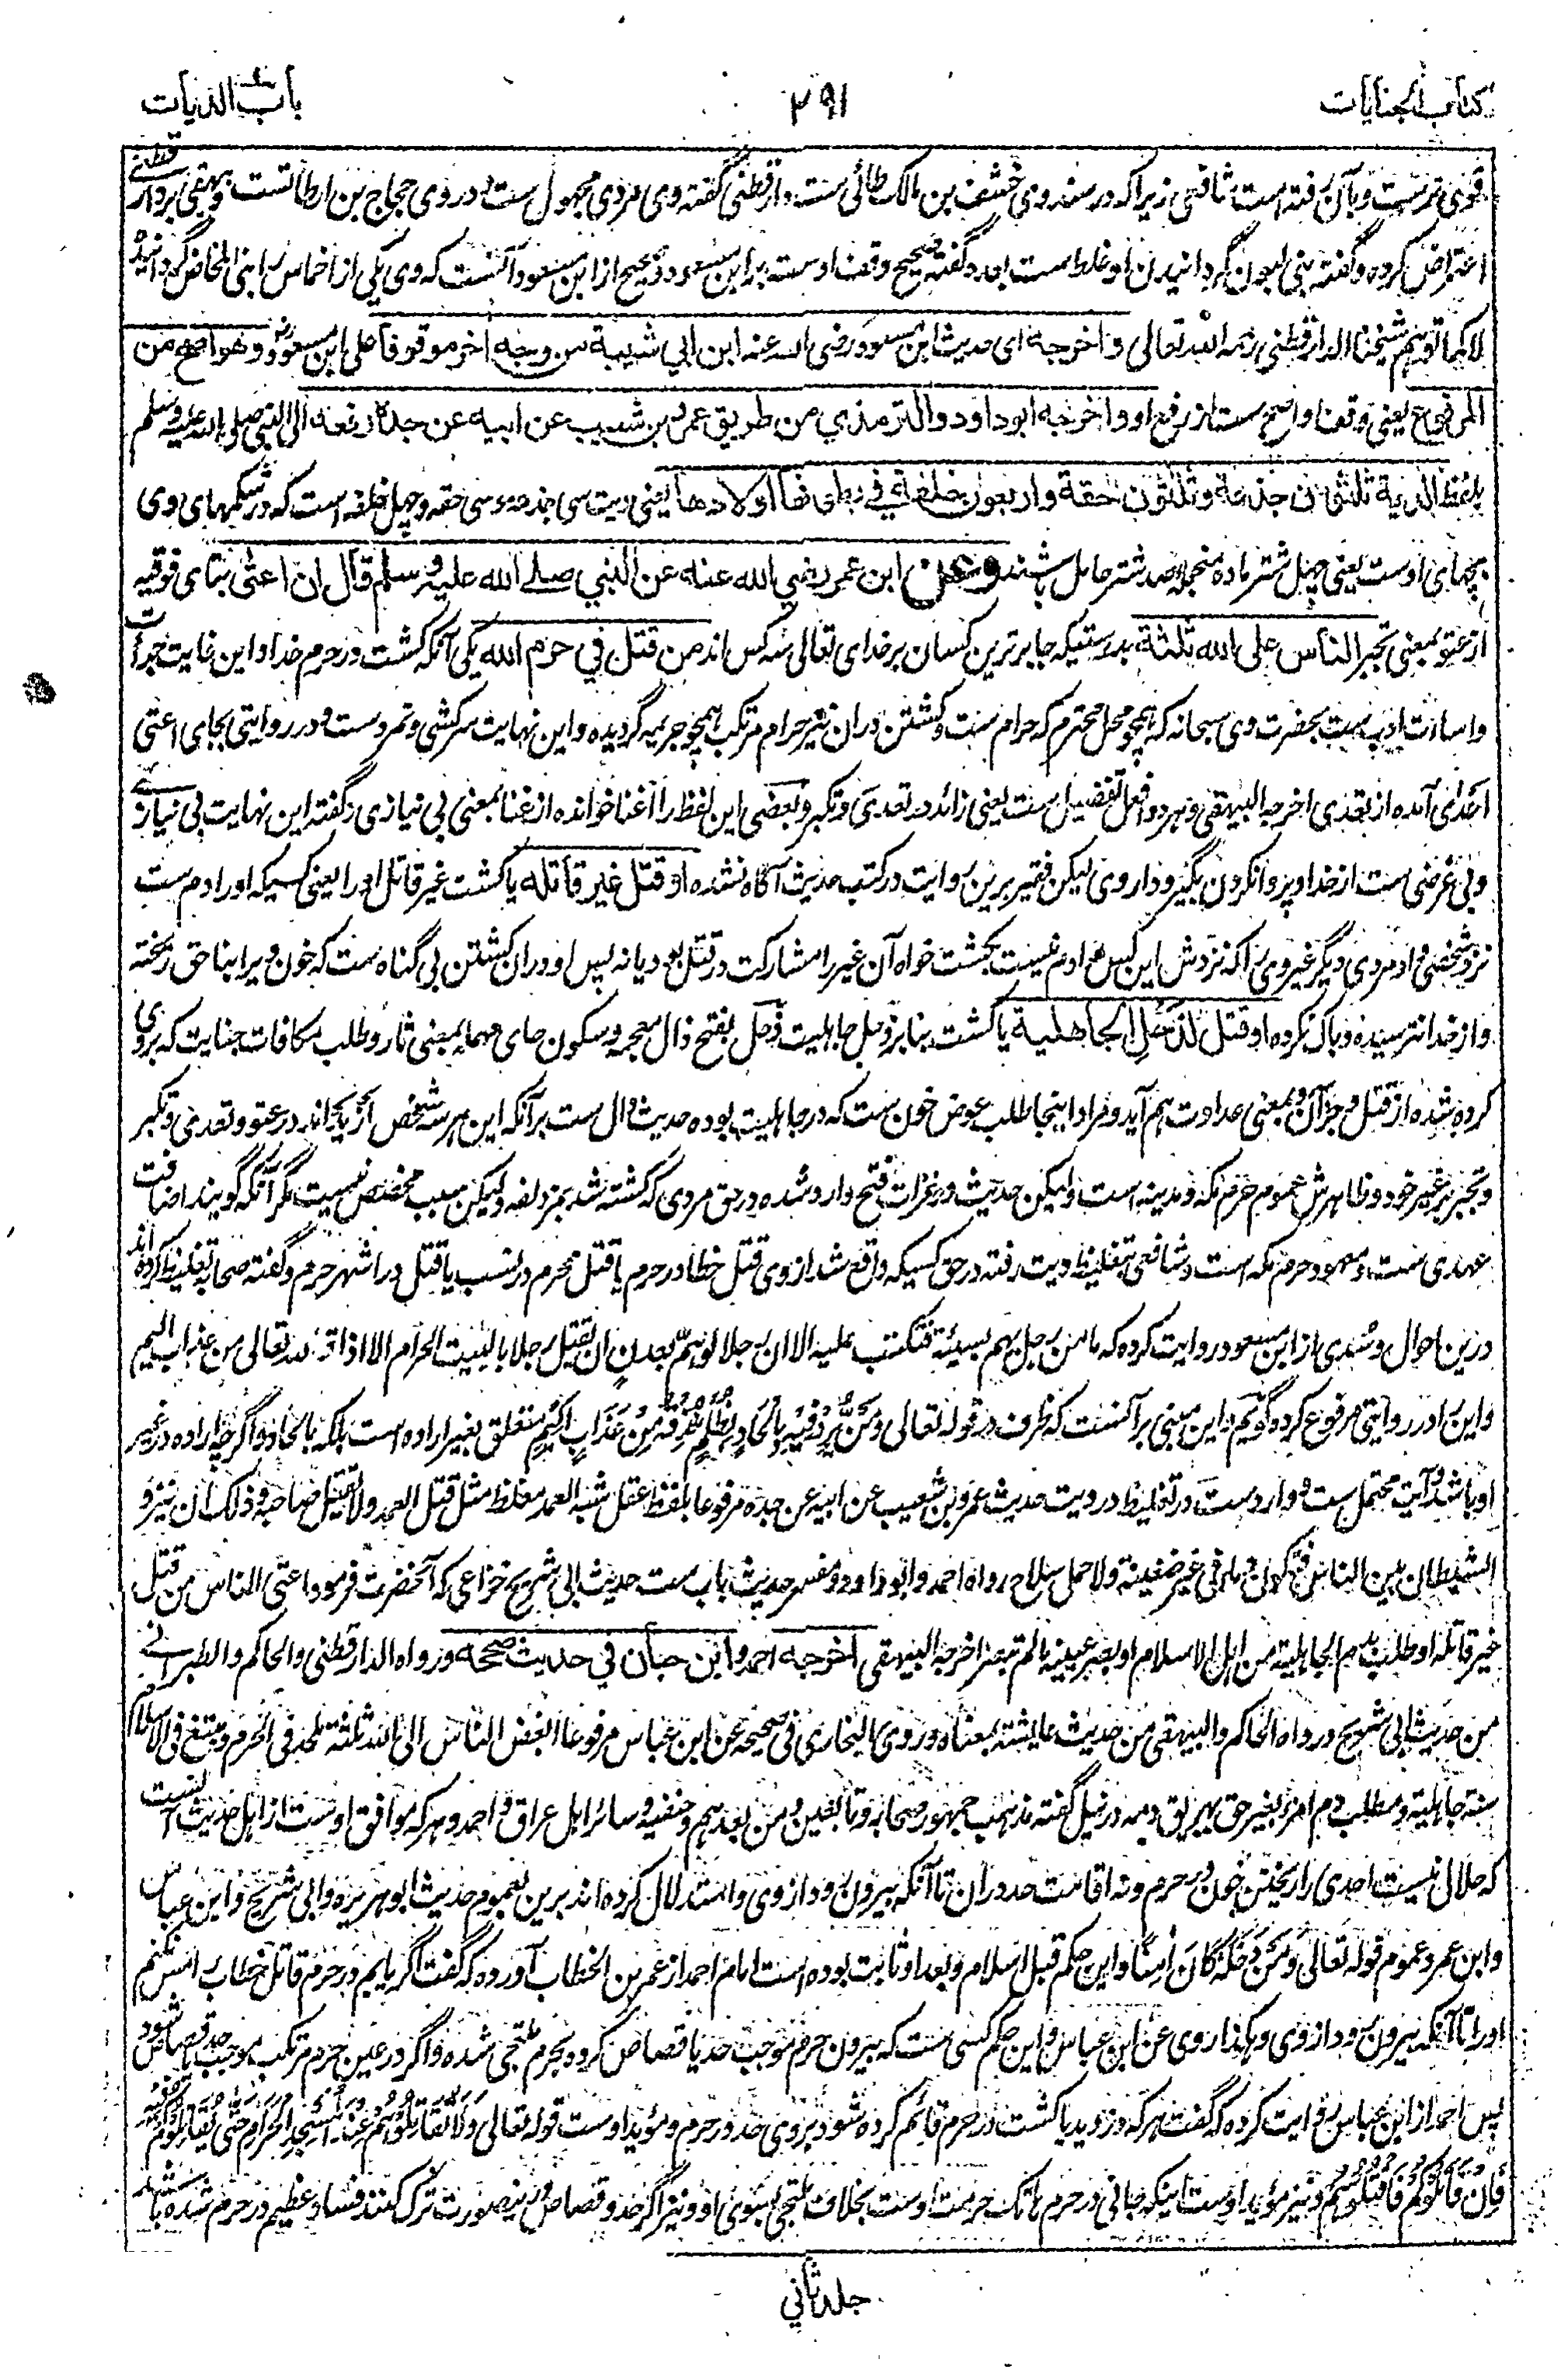 کتاب الجنایات ۲۹۱ باب الدیات
قوی ترست و بآن رفته است شافعی زیرا که در سند وی خشف بن مالک طائی ست دارقطنی گفته وی مردی مجهول ست و در وی حجاج بن ارطاتست و بیهقی بر دارقطنی
اعتراض کرده و گفته بنی لبون گردانیدن او غلط ست بعده گفته صحیح وقف اوست بر ابن مسعود و صحیح از ابن مسعود آنست که وی یکی از اخماس را بنی المخاض گردانیده
لا کما توهم شیخنا الدارقطنی رحمه الله تعالی و اخرجه ای حدیث ابن مسعود رضی الله عنه ابن ابی شیبة من وجه اخر موقوفا علی ابن مسعود و هو اصح من
المرفوع یعنی وقف او اصح ست از رفع او و اخرجه ابو داود و الترمذی من طریق عمرو بن شعیب عن ابیه عن جده رفعه الی النبی صلی الله علیه وسلم
بلفظ الدیة ثلثون جذعة و ثلثون حقة و اربعون خلفة فی بطونها اولادها یعنی دیت سی جذعه و سی حقه و چهل خلفه است که در شکمهای وی
بچهای اوست یعنی چهل شتر ماده منجمله صد شتر حامل باشند و عن ابن عمر رضی الله عنه عن النبی صلے الله علیه و سلم قال ان اعتی بتای فوقیه
از عتو بمعنی تجبر الناس علی الله ثلثة بدرستیکه جابرترین کسان بر خدای تعالی سه کس اند من قتل فی حرم الله یکی آنکه کشت در حرم خدا و این غایت جرأت
و اساءت ادب ست بحضرت وی سبحانه که همچو محل محترم که حرام ست و کشتن دران نیز حرام مرتکب همچو جریمه گردیده و این نهایت سرکشی و تمرد ست و در روایتی بجای اعتی
اعدی آمده از تعدی اخرجه البیهقی و هر دو افعل تفضیل ست یعنی زائد در تعدی و تکبر و بعضی این لفظ را اغنا خوانده از غنا بمعنی بی نیازی و گفته این نهایت بی نیازی
و بی غرضی ست از خدا و پروا نکردن بگیر و دار وی لیکن فقیر برین روایت در کتب حدیث آگاه نشده او قتل غیر قاتله یا کشت غیر قاتل او را یعنی کسیکه او را دم ست
نزد شخصی و او مردی دیگر غیر وی را که نزدش این کس را دم نیست بکشت خواه آن غیر را مشارکت در قتل بود یا نه پس او دران کشتن بی گناه ست که خون ویرا بناحق ریخته
و از خدا نترسیده و باک نکرده او قتل لذحل الجاهلیة یا کشت بنا بر ذحل جاهلیت ذحل بفتح ذال معجمه و سکون حای مهمله بمعنی ثار و طلب مکافات جنایت که بر وی
کرده شده از قتل و جز آن و بمعنی عداوت هم آید و مراد اینجا طلب عوض خون ست که در جاهلیت بوده حدیث دال ست بر آنکه این هر سه شخص در عتو و تعدی و تکبر
و تجبر بر غیر خود و ظاهرش عموم حرم مکه و مدینه است ولیکن حدیث در غزات فتح وارد شده در حق مردی که کشته شد بمزدلفه ولیکن سبب مخصص نیست مگر آنکه گویند اضافت
عهدی ست و معهود حرم مکه است و شافعی بتغلیظ دیت رفته در حق کسیکه واقع شد از وی قتل خطا در حرم یا قتل محرم در نسب یا قتل در اشهر حرم و گفته صحابه تغلیظ کرده اند
درین احوال و سدی از ابن مسعود روایت کرده که ما من رجل یهم بسیئة فتکتب علیه الا ان رجلا لو هم بعدن ان یقتل رجلا بالبیت الحرام الا اذاقه الله تعالی من عذاب الیم
و این را در روایتی مرفوع کرده و گویم و این مبنی بر آنست که ظرف در قوله تعالی وَمَنْ یُرِدْ فِیهِ بِاِلْحَادٍ بِظُلْمٍ نُذِقْهُ مِنْ عَذَابٍ اَلِیمٍ متعلق بغیر اراده است بلکه بالحاد و اگرچه اراده در غیر
او باشد و آیت محتمل ست و وارد ست در تغلیظ در دیت حدیث عمرو بن شعیب عن ابیه عن جده مرفوعا بلفظ عقل شبه العمد مغلظ مثل قتل العمد و لا یقتل صاحبه و ذلک ان ینزو
الشیطان بین الناس فتکون دماء فی غیر ضغینة و لا حمل سلاح رواه احمد و ابو داود و مفسر حدیث باب ست حدیث ابی شریح خزاعی که آنحضرت فرمود اعتی الناس من قتل
غیر قاتله او طلب بدم الجاهلیة من اهل الاسلام او بصر عینیه ما لم تبصر اخرجه البیهقی اخرجه احمد و ابن حبان فی حدیث صححه و رواه الدارقطنی و الحاکم و الطبرانی
من حدیث ابی شریح و رواه الحاکم و البیهقی من حدیث عایشة بمعناه و روی البخاری فی صحیحه عن ابن عباس مرفوعا ابغض الناس الی الله ثلثة ملحد فی الحرم و مبتغ فی الاسلام
سنة جاهلیة و مطلب دم امرء بغیر حق لیهریق دمه در نیل گفته مذهب جمهور صحابه و تابعین و من بعدهم و حنفیه و سائر اهل عراق و احمد و هر که موافق اوست از اهل حدیث آنست
که حلال نیست احدی را ریختن خون در حرم و نه اقامت حد دران تا آنکه بیرون رود از وی و استدلال کرده اند برین بعموم حدیث ابو هریره و ابی شریح و ابن عباس
و ابن عمر و عموم قوله تعالی وَمَنْ دَخَلَهُ کَانَ آمِنًا و این حکم قبل اسلام و بعد او ثابت بوده است امام احمد از عمر بن الخطاب آورده که گفت اگر یابم در حرم قاتل خطاب را مس نکنم
او را تا آنکه بیرون رود از وی و هکذا روی عن ابن عباس و این حکم کسی ست که بیرون حرم موجب حد یا قصاص کرده بحرم ملتجی شده و اگر در عین حرم مرتکب موجب حد یا قصاص شود
پس احمد از ابن عباس روایت کرده که گفت هر که دزدید یا کشت در حرم قائم کرده شود بر وی حد در حرم و مؤید اوست قوله تعالی وَلَا تُقَاتِلُوهُمْ عِنْدَ الْمَسْجِدِ الْحَرَامِ حَتَّی یُقَاتِلُوکُمْ فِیهِ
فَاِنْ قَاتَلُوکُمْ فَاقْتُلُوهُمْ و نیز مؤید اوست اینکه جانی در حرم هاتک حرمت اوست بخلاف ملتجی بسوی او و نیز اگر حد و قصاص درین صورت ترک کنند فساد عظیم در حرم شده باشد
جلد ثانی